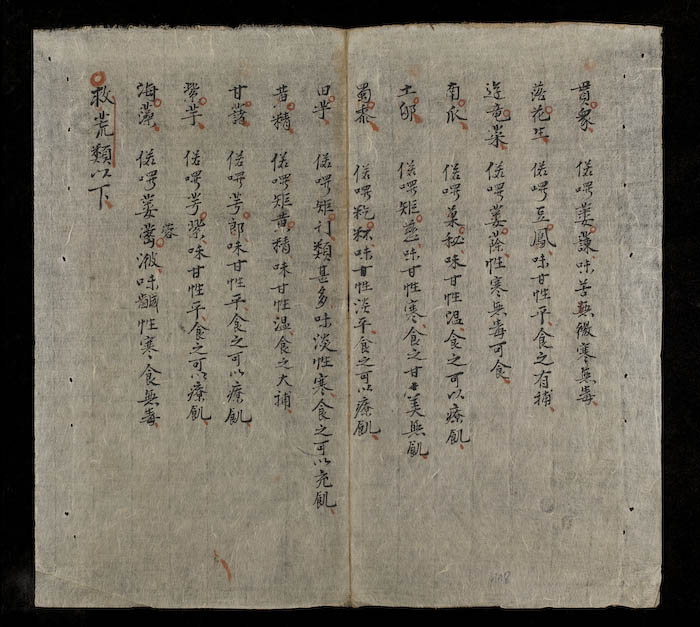 貫衆 俗呼味苦無微寒無毒
落花生 俗呼豆鳳味甘性平食之有補
竜菜 俗呼蒌蒢性寒無毒可食
南瓜 俗呼菓秘味甘性温食之可以療飢
土卵 俗呼矩慈味甘性寒食之甘美無飢
蜀黍 俗呼味甘性淡平食之可以療飢
田芋 俗呼矩訂類甚多味淡性寒食之可以充飢
黄精 俗呼矩黄精味甘性温食之大補
甘藷 俗呼芌郎味甘性平食之可以療飢
紫芋 俗呼芌紫味甘性平食之可以療飢
海藻 俗呼蒌味鹹性寒食無毒
救荒類以下